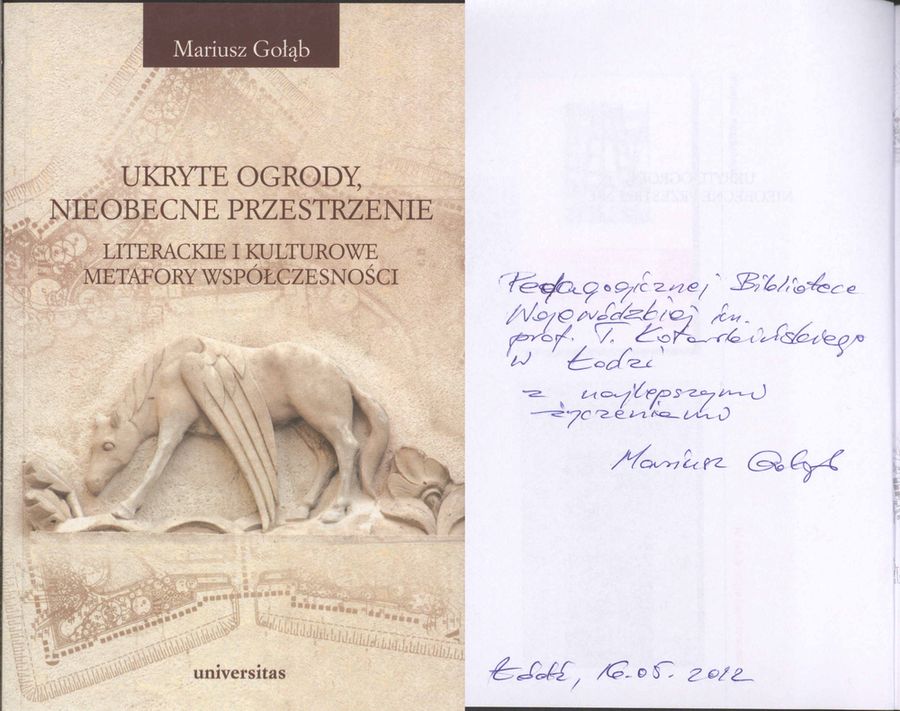 Mariusz Gołąb
UKRYTE OGRODY,
NIEOBECNE PRZESTRZENIE
LITERACKIE I KULTUROWE
METAFORY WSPÓŁCZESNOŚCI
universitas
Pedagogicznej Bibliotece
Wojewódzkiej im.
prof. T. Kotarbińskiego
w Łodzi
z najlepszymi
życzeniami
Mariusz Gołąb
Łódź, 16.05. 2012